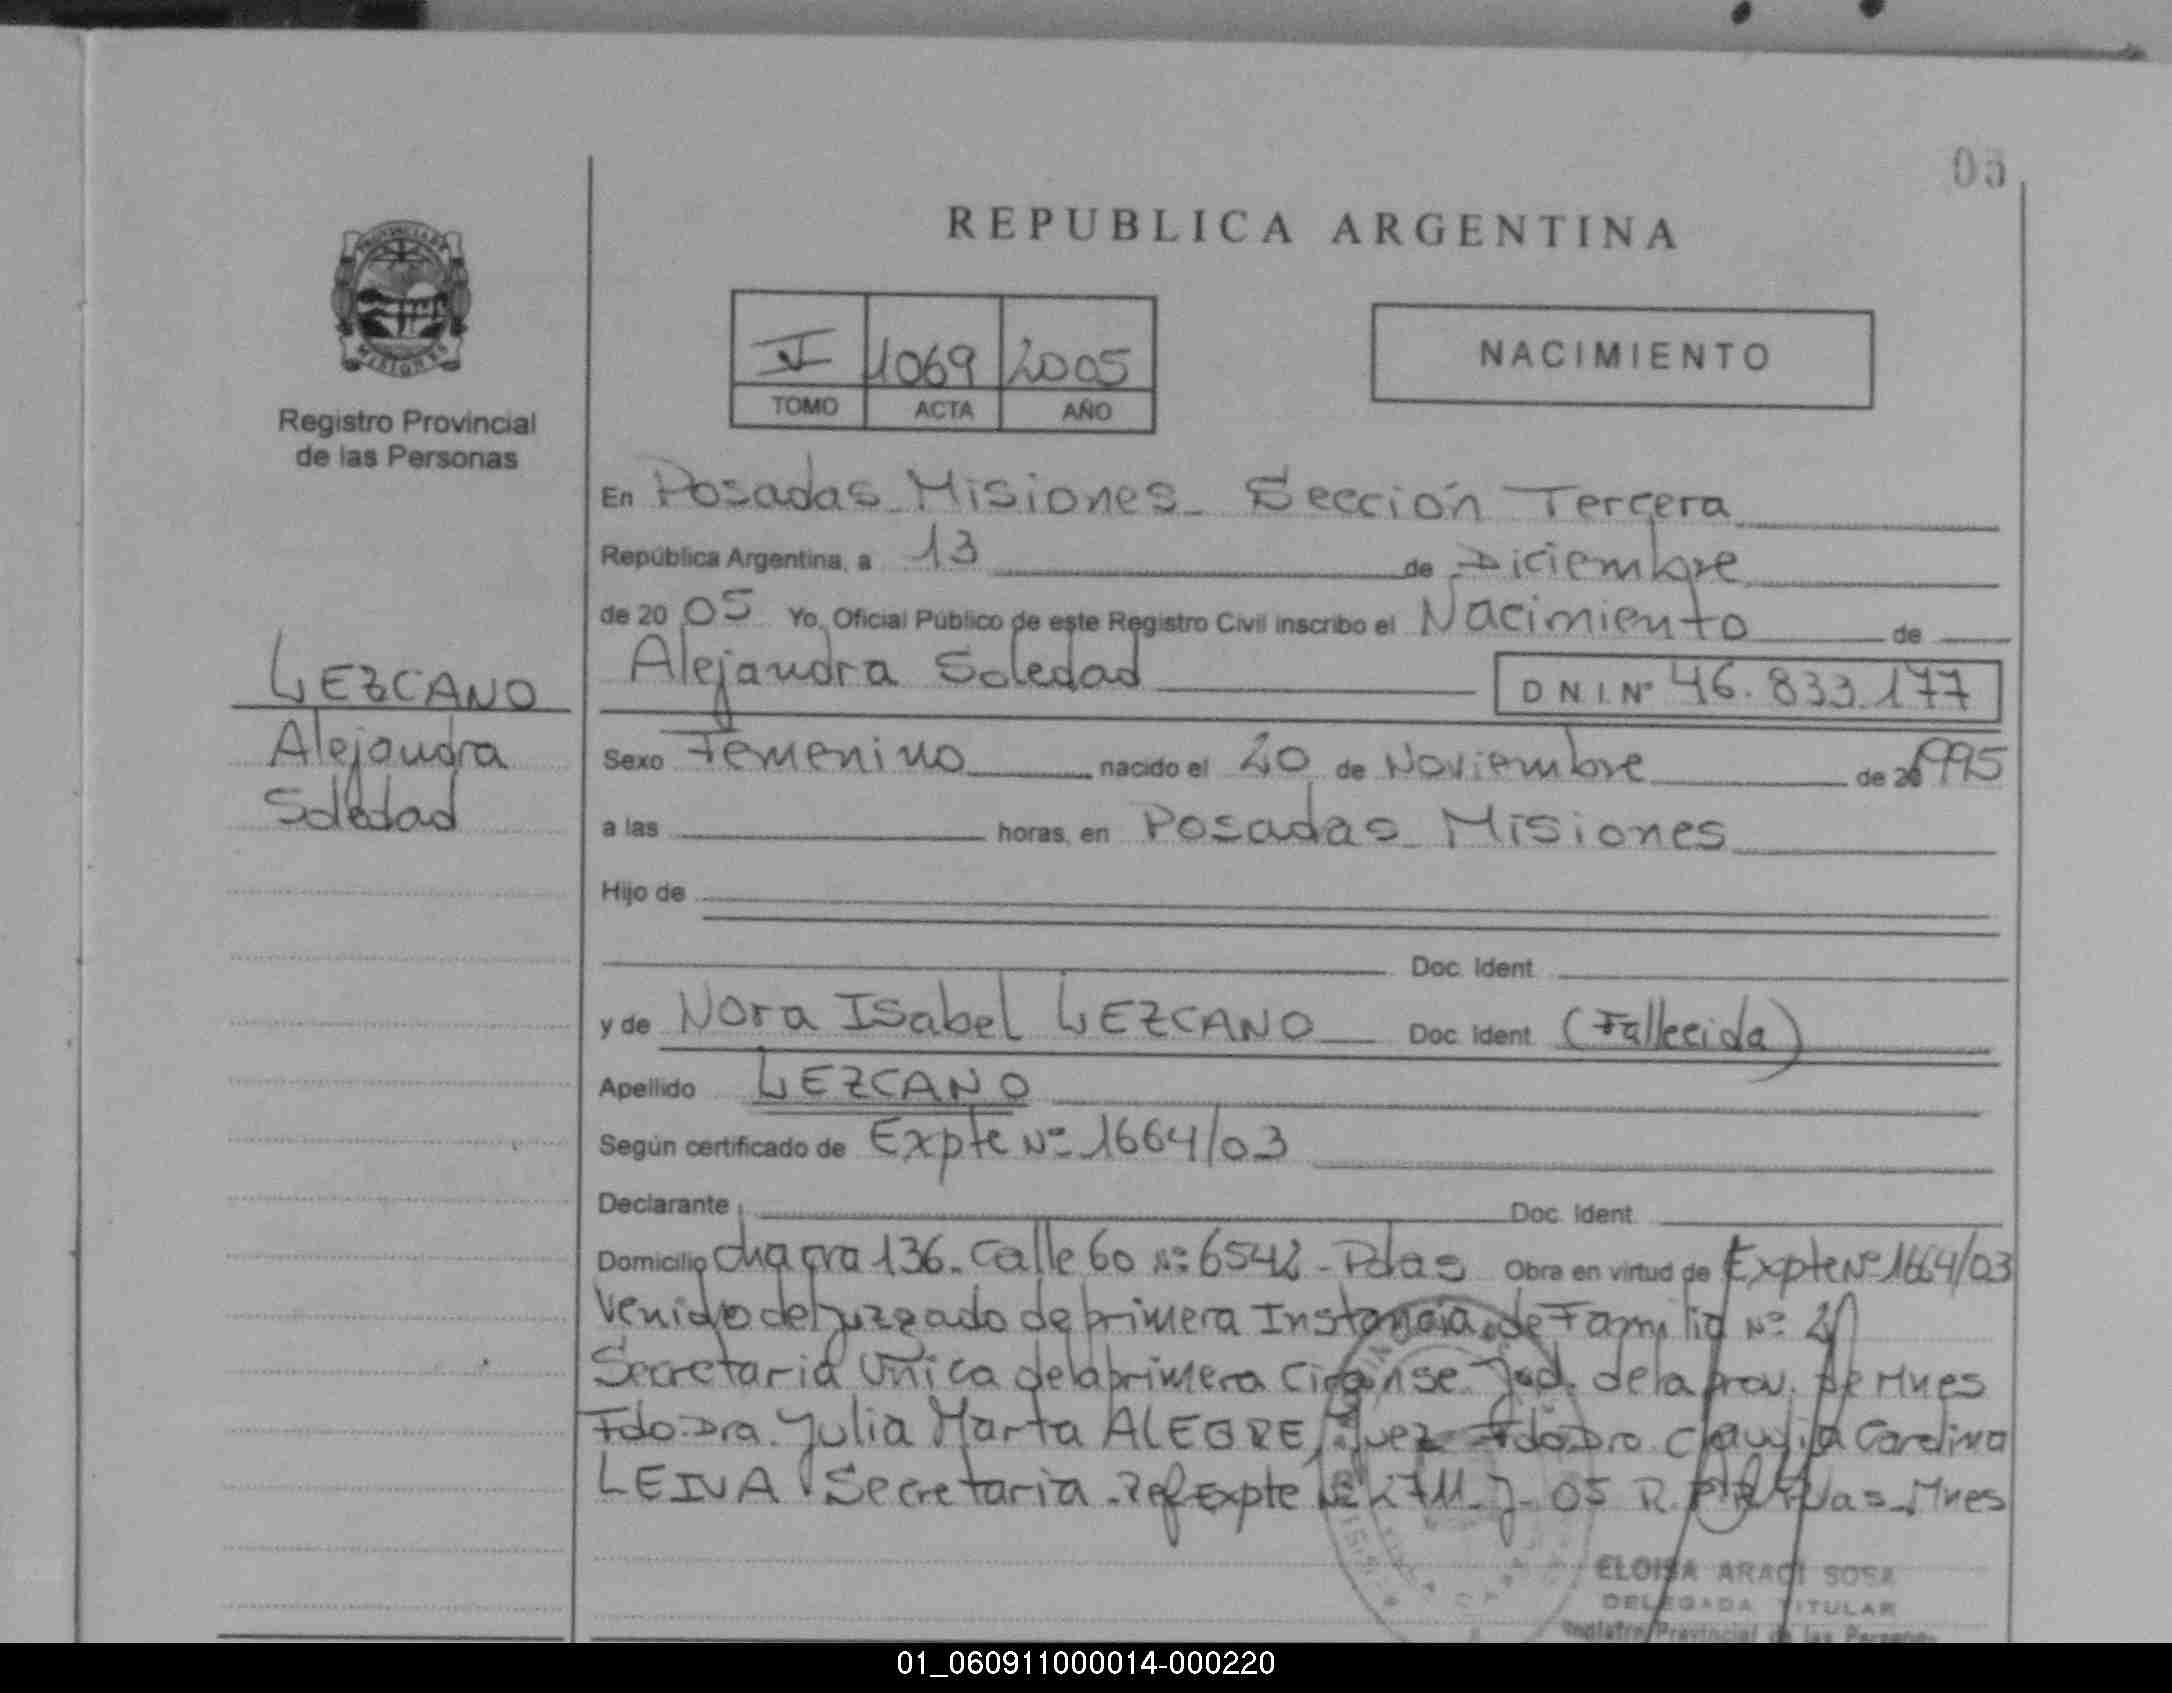 05
REPUBLICA ARGENTINA
PROVINCIA DE
MISIONES
Registro Provincial
de las Personas
1069 2005
TOMO ACTA AÑO
NACIMIENTO
En Posadas Misiones - Sección Tercera
República Argentina, a 13 de Diciembre
de 20 05 Yo, Oficial Público de este Registro Civil inscribo el Nacimiento de
Alejandra Soledad D N I. Nº 46.833.177
LEZCANO
Alejandra
Soledad
Sexo Femenino nacido el 20 de Noviembre de 1995
a las horas, en Posadas Misiones
Hijo de
Doc. Ident.
y de Nora Isabel LEZCANO Doc. Ident. (Fallecida)
Apellido LEZCANO
Según certificado de Expte Nº 1664/03
Declarante Doc. Ident.
Domicilio chacra 136. calle 60 Nº 6542 - Pdas Obra en virtud de Expte Nº 1664/03
Venido del juzgado de primera Instancia de Familia Nº 2
Secretaria Unica de la primera Circunse. Jud. de la prov. de Mnes
Fdo. Dra. Julia Marta ALEGRE, Juez Fdo. Dra. Claudia Carolina
LEIVA Secretaria. Ref Expte 05 R. Pdas. Mnes
ELOISA ARACI SOSA
DELEGADA TITULAR
Registro Provincial de las Personas
01_060911000014-000220